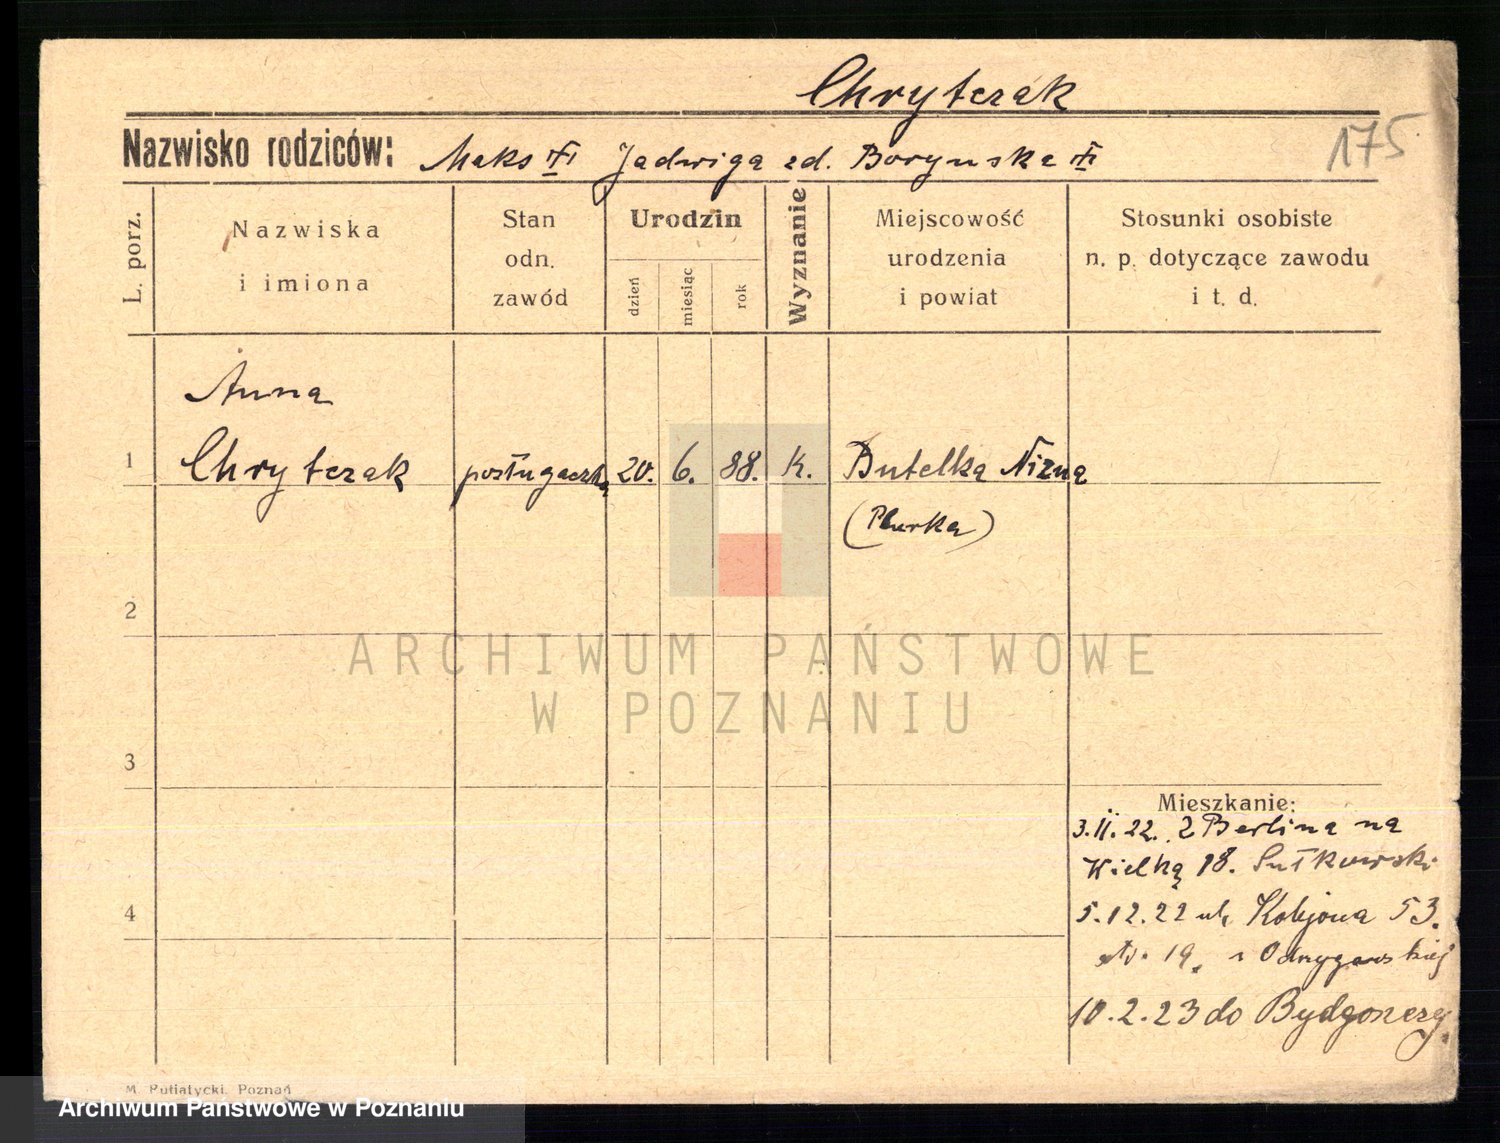 Chrytczak
175
Nazwisko rodziców: Maks Jadwiga zd. Borynska
L. porz.
Nazwiska i imiona
Stan odn. zawód
Urodzin
dzień
miesiąc
rok
Wyznanie
Miejscowość urodzenia i powiat
Stosunki osobiste n. p. dotyczące zawodu i t. d.
Anna
1 Chrytczak posługaczka 20. 6. 88. K. Butelka Niżna
2
3
4
Mieszkanie:
3.II.22. z Berlina na
Wielką 18. Sułkowski
5.12.22 ul. 53.
19.
10.2.23 do Bydgoszczy.
M. Putiatycki, Poznań
ARCHIWUM PAŃSTWOWE
W POZNANIU
Archiwum Państwowe w Poznaniu